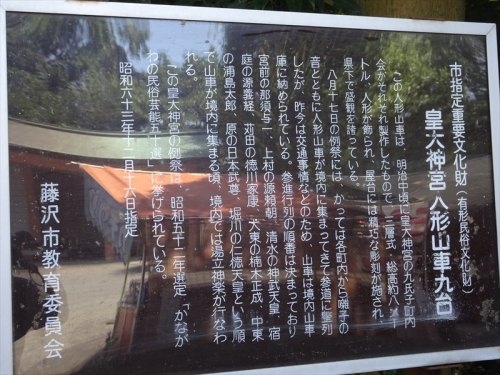 市指定重要文化財（有形民俗文化財）
皇大神宮 人形山車九台
この人形山車は、明治中頃に皇大神宮の九氏子町内
会がそれぞれ製作したもので、三層式、総高約八メー
トル、人形が飾られ、屋台には精巧な彫刻が施され、
県下で盛観を誇っている。
八月十七日の例祭には、かつては各町内から囃子の
音とともに人形山車が境内に集まってきて参道に整列
したが、昨今は交通事情などのため、山車は境内山車
庫に納められている。参進行列の順番は決まっており
宮前の那須与一、上村の源頼朝、清水の神武天皇、宿
庭の源義経、苅田の徳川家康、大東の楠木正成、中東
の浦島太郎、原の日本武尊、堀川の仁徳天皇という順
で山車が境内に集まる頃、境内では湯立神楽が行なわ
れる。
この皇大神宮の例祭は、昭和五十二年選定「かなが
わの民俗芸能五十選」に挙げられている。
昭和六十三年十二月十六日指定
藤沢市教育委員会